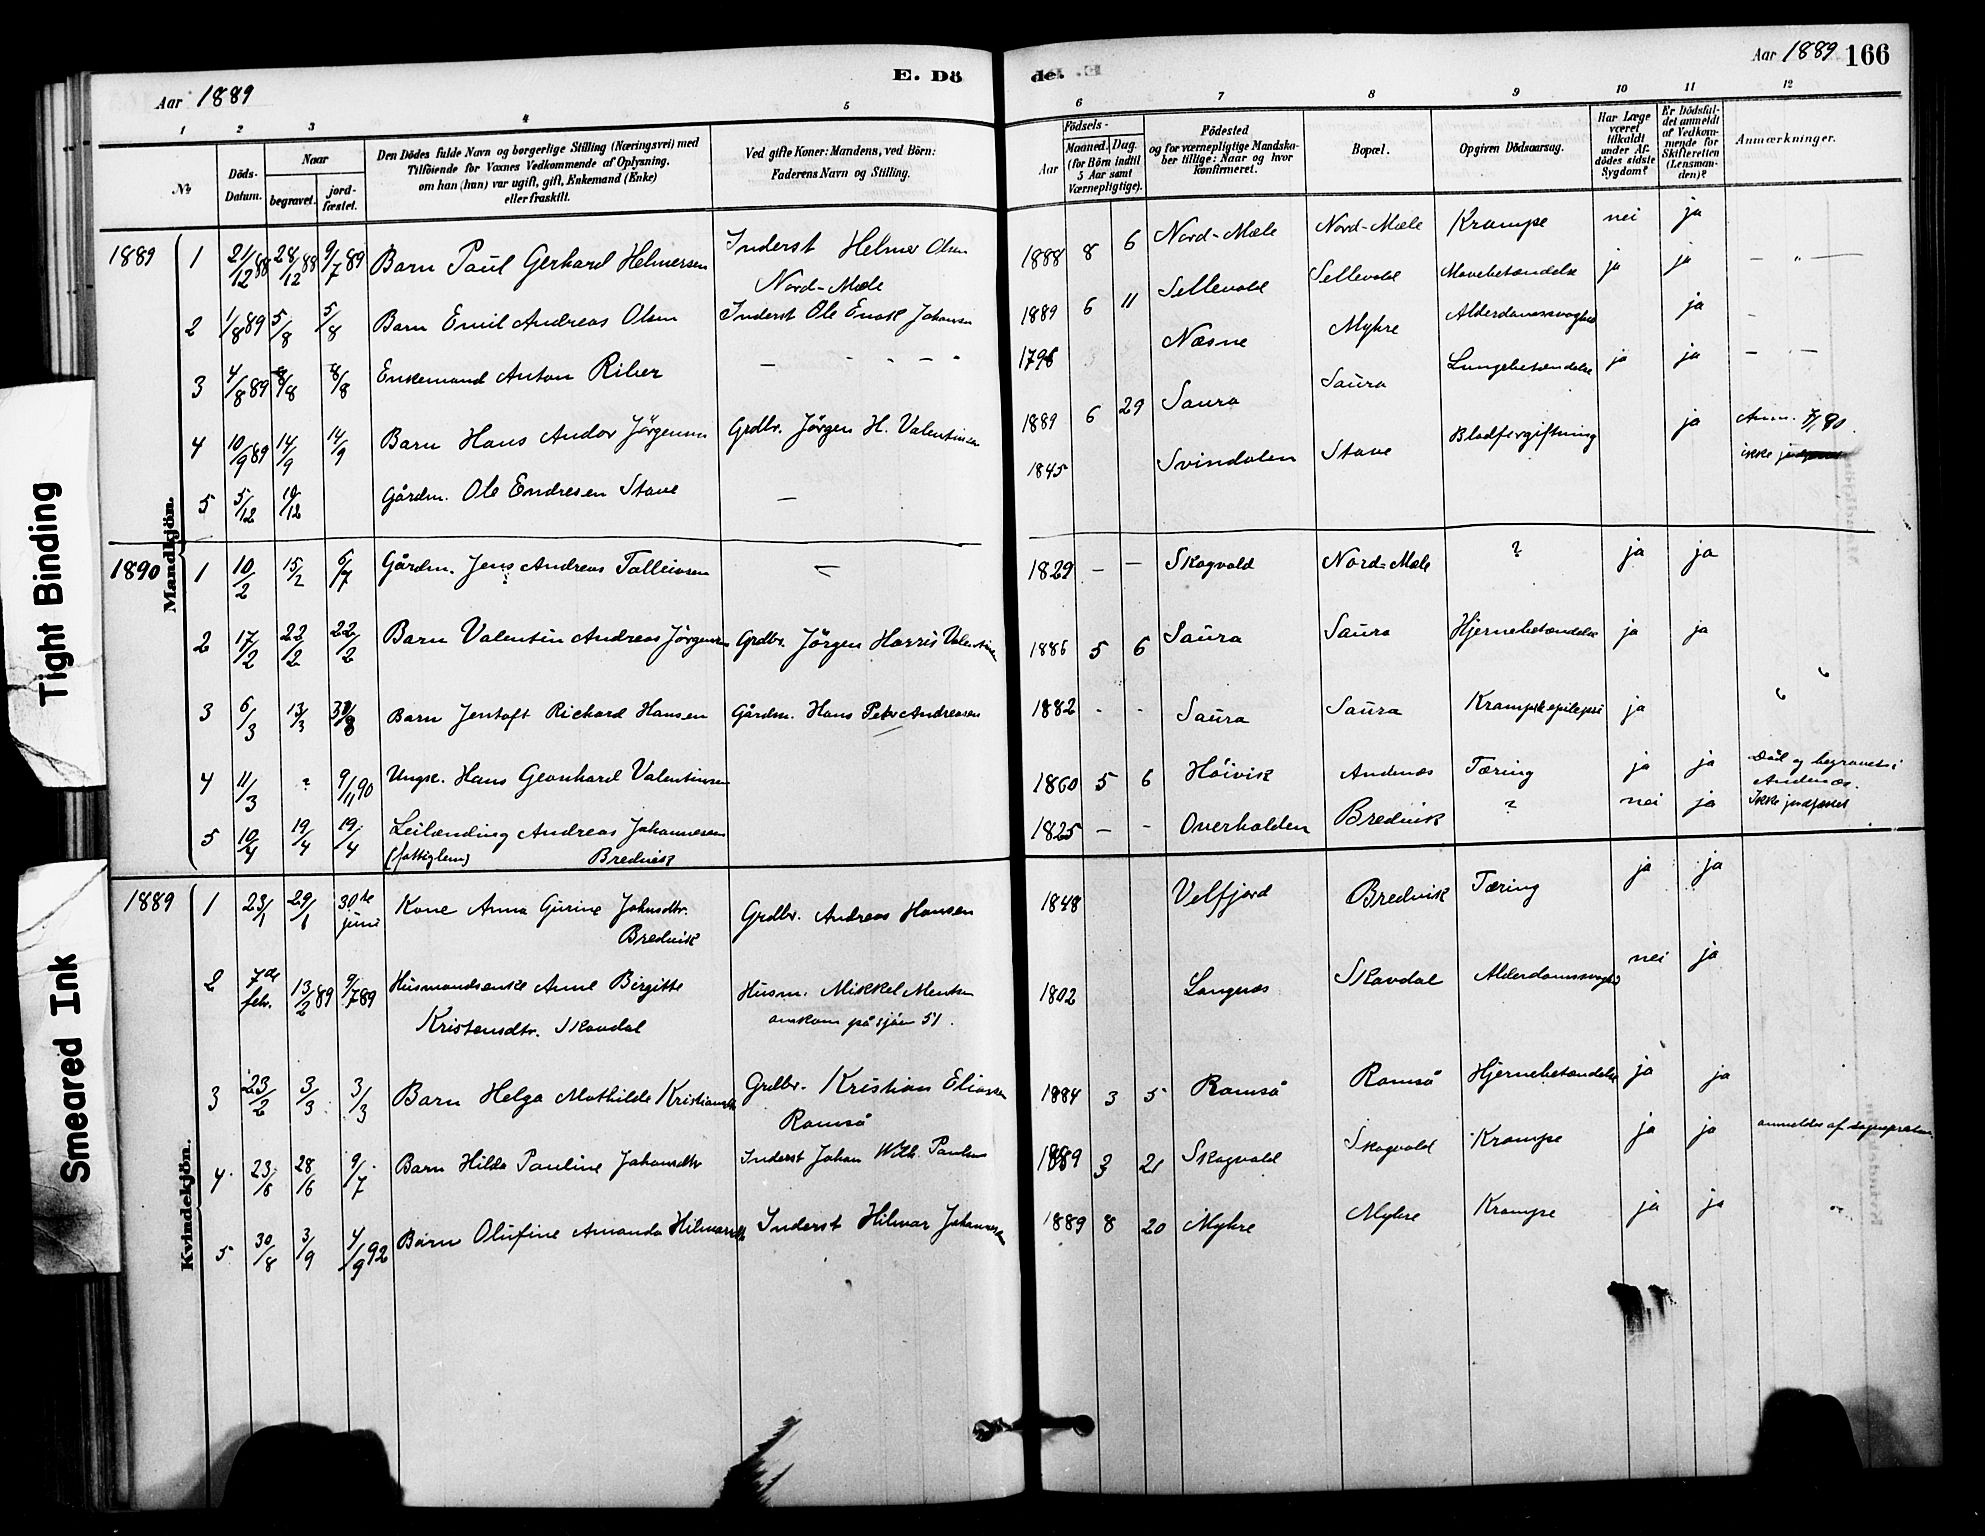 E. Dö
de.
Aar 1889
Aar 1889 166
1 2 3 4 5
6 7 8 9 10 11 12
No
Döds-Datum.
Naar
begravet.
jordfæstet.
Den Dödes fulde Navn og borgerlige Stilling (Næringsvei) med
Tilföiende for Voxnes Vedkommende af Oplysning.
om han (hun) var ugift, gift, Enkemand (Enke)
eller fraskilt.
Ved gifte Koner: Mandens, ved Börn:
Faderens Navn og Stilling.
Födsels-
Aar
Maaned. Dag.
(for Börn indtil
5 Aar samt
Værnepligtige).
Födested
og for værnepligtige Mandskaber tillige: Naar og hvor
konfirmeret.
Bopæl.
Opgiven Dödsaarsag.
Har Læge
været
tilkaldt
under Afdödes sidste
Sygdom?
Er Dödsfaldet anmeldt
af Vedkommende for
Skifteretten
(Lensmanden)?
Anmærkninger.
Mandkjön.
1889 1 21/12 88 28/12 88 9/7 89 Barn Paul Gerhard Helmersen Inderst Helmer Olsen
Nord-Mæle
1888 8 6 Nord-Mæle Nord-Mæle Krampe nei ja
2 1/8 89 5/8 5/8 Barn Emil Andreas Olsen Inderst Ole Enok Johansen
1889 6 11 Sellevold Sellevold Mavebetændelse ja ja
3 4/8 89 8/8 8/8 Enkemand Anton Riber —
1796 Næsne Myhre Alderdomssvaghed ja
4 10/9 89 14/9 14/9 Barn Hans Andor Jörgensen Grdbr. Jörgen H. Valentinsen
1889 6 29 Saura Saura Lungebetændelse ja ja
5 5/12 19/12 Gårdm. Ole Endresen Stave —
1845 Svindalen Stave Blodforgiftning ja Anm. 7/90.
ikke
1890 1 10/2 15/2 6/7 Gårdm. Jens Andreas Tolleivsen —
1829 — — Skogvold Nord-Mæle ? ja ja
2 17/2 22/2 22/2 Barn Valentin Andreas Jörgensen Grdbr. Jörgen Harris Valentinsen
1886 5 6 Saura Saura Hjernebetændelse ja ja
3 6/3 13/3 Barn Jentoft Richard Hansen Gårdm. Hans Peter Andreasen
1882 - - Saura Saura Krampe epilepsi ja
4 11/3 ? 9/11 90 Ungk. Hans Geonhard Valentinsen
1860 5 6 Höivik Andenæs Tæring ja ja Död og begravet i
Andenæs.
5 10/4 19/4 19/4 Leilænding Andreas Johannesen
(fattiglem) Bredvik
1825 — - Overhalden Bredvik ? nei ja Ikke jordfæstet
Kvindekjön.
1889 1 23/1 29/1 30te juni Kone Anna Gurine Johnsdtr.
Bredvik
Grdbr. Andreas Hansen
1848 Velfjord Bredvik Tæring ja ja
2 7de febr. 13/2 89 9/7 89 Husmandsenke Anne Birgitte
Kristensdtr. Skavdal
Husm. Mikkel Mentsen
omkom på sjöen 51.
1802 Langnæs Skavdal Alderdomssvaghed nei ja
3 23/2 3/3 3/3 Barn Helga Mathilde Kristiansdtr Grdbr. Kristian Eliassen
Ramså
1884 3 5 Ramså Ramså Hjernebetændelse ja ja
4. 23/6 28/6 9/7 Barn Hilda Pauline Johansdtr Inderst Johan Wilh. Paulsen
1889 3 21 Skogvold Skogvold Krampe ja ja anmeldt af sognepresten
5 30/8 3/9 4/9 92 Barn Olufine Amanda Hilmarsdtr Inderst Hilmar Johannesen
1889 8 20 Myhre Myhre Krampe ja ja
Tight Binding
Smeared Ink